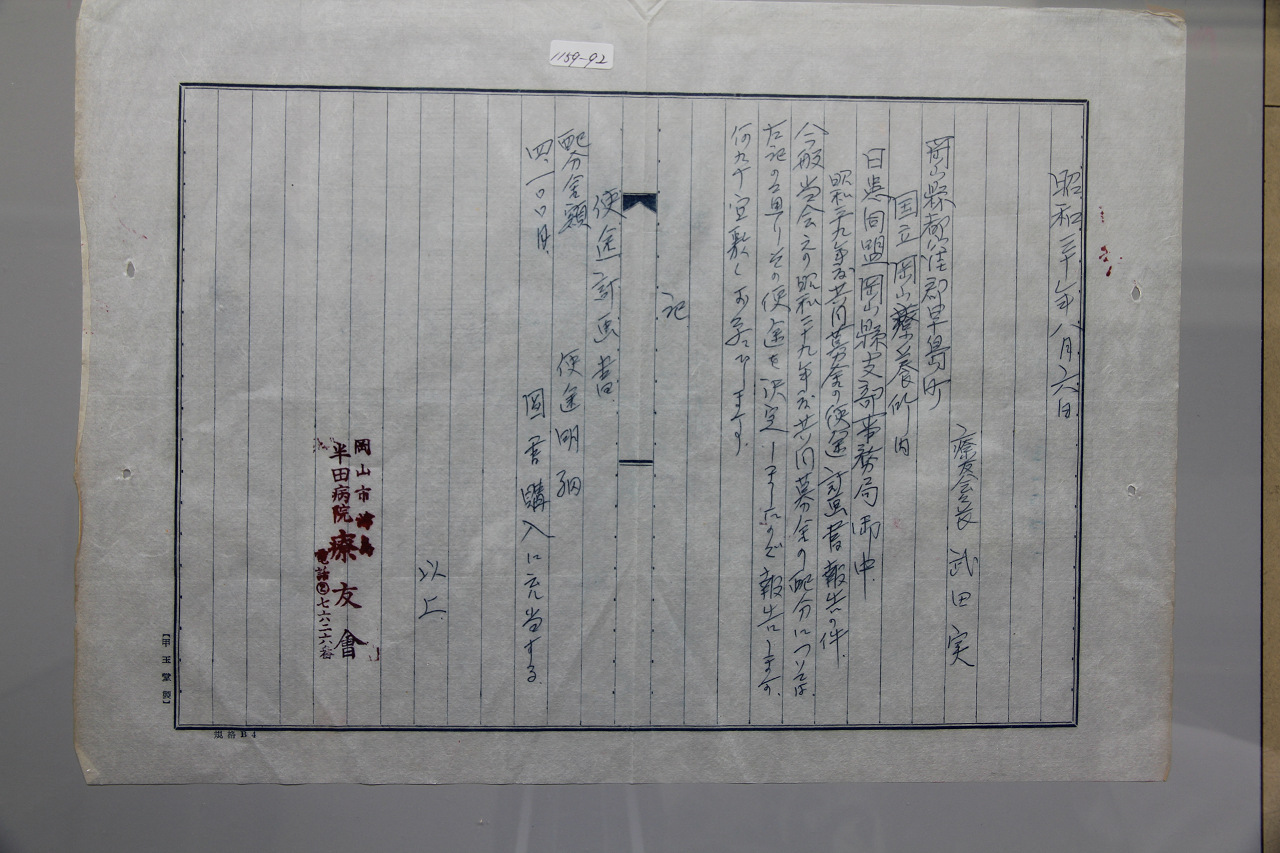 1159-92
昭和三十年八月六日
療友会長 武田実
岡山縣都窪郡早島町
国立岡山療養所内
日患同盟岡山縣支部事務局御中
昭和二十九年度共同募金の使途計画書報告の件
今般当会えの昭和二十九年度共同募金の配分については
左記の通りその使途を決定しましたので報告します。
何卒宜敷くお願いします。
記
使途計画書
配分金額 使途明細
四、一〇〇円 図書購入に充当する。
以上
岡山市
半田病院療友會
電話 七六二六番
規格B4